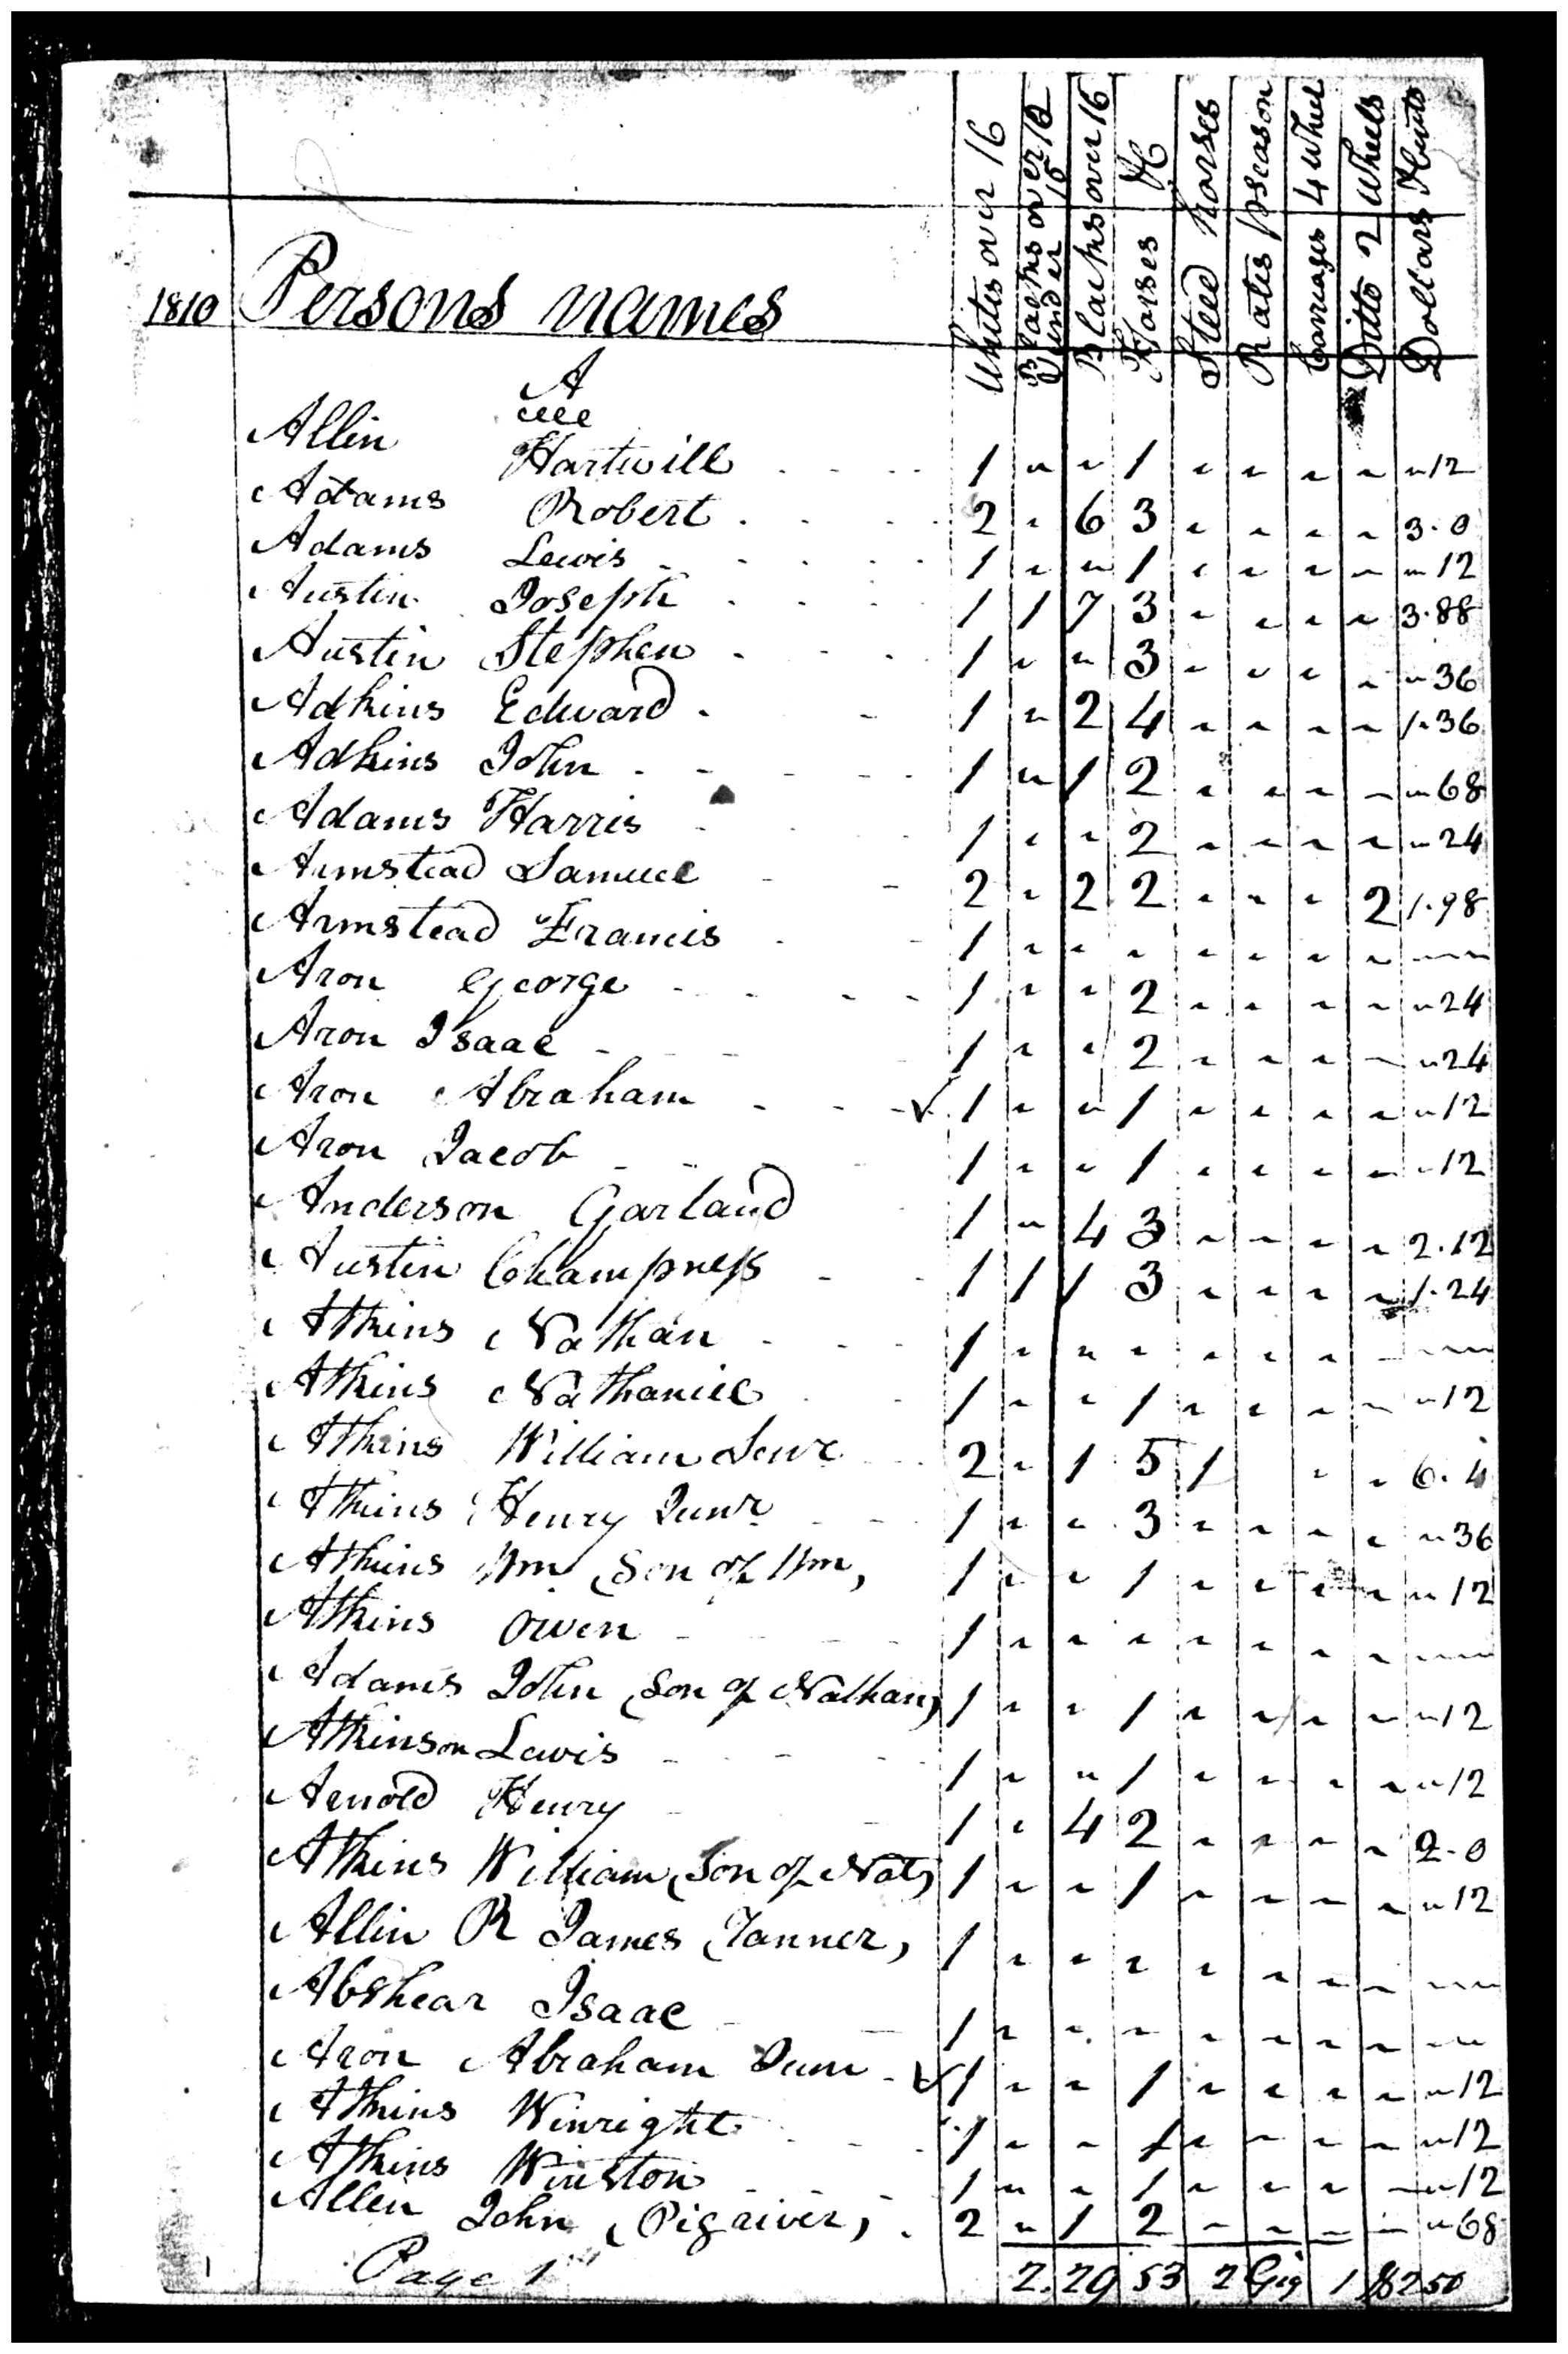 Whites over 16
Blacks over 12
Under 16
Blacks over 16
Horses &c
Steed horses
Rates pseason
Carriages 4 wheel
Ditto 2 Wheels
Dollars & Cents
1810 Persons names
A
Allin Hartwill 1 " " 1 " " " " " 12
Adams Robert 2 " 6 3 " " " " 3.0
Adams Lewis 1 " " 1 " " " " " 12
Austin Joseph 1 1 7 3 " " " " 3.88
Austin Stephen 1 " " 3 " " " " " 36
Adkins Edward 1 " 2 4 " " " " 1.36
Adkins John 1 " 1 2 " " " " " 68
Adams Harris 1 " " 2 " " " " " 24
Armstead Samuel 2 " 2 2 " " " 2 1.98
Armstead Francis 1 " " " " " " " "
Aron George 1 " " 2 " " " " " 24
Aron Isaac 1 " " 2 " " " " " 24
Aron Abraham ✓ 1 " " 1 " " " " " 12
Aron Jacob 1 " " 1 " " " " " 12
Anderson Garland 1 " 4 3 " " " " 2.12
Austin Champness 1 1 1 3 " " " " 1.24
Atkins Nathan 1 " " " " " " " "
Atkins Nathaniel 1 " " 1 " " " " " 12
Atkins William Senr 2 " 1 5 1 " " 6.4
Atkins Henry Junr 1 " " 3 " " " " " 36
Atkins Wm (Son of Wm) 1 " " 1 " " " " " 12
Atkins Owen 1 " " " " " " " "
Adams John (Son of Nathan) 1 " " 1 " " " " " 12
Atkinson Lewis 1 " " 1 " " " " " 12
Arnold Henry 1 " 4 2 " " " " 2.0
Atkins William (Son of Nat) 1 " " 1 " " " " " 12
Allin R James (Tanner) 1 " " " " " " " "
Abshear Isaac 1 " " " " " " " "
Aron Abraham Junr ✓ 1 " " 1 " " " " " 12
Atkins Winright 1 " " 1 " " " " " 12
Atkins Winston 1 " " 1 " " " " " 12
Allen John (Pigriver) 2 " 1 2 " " " " " 68
Page 1st 2. 29 53 2 Gig 1 $250